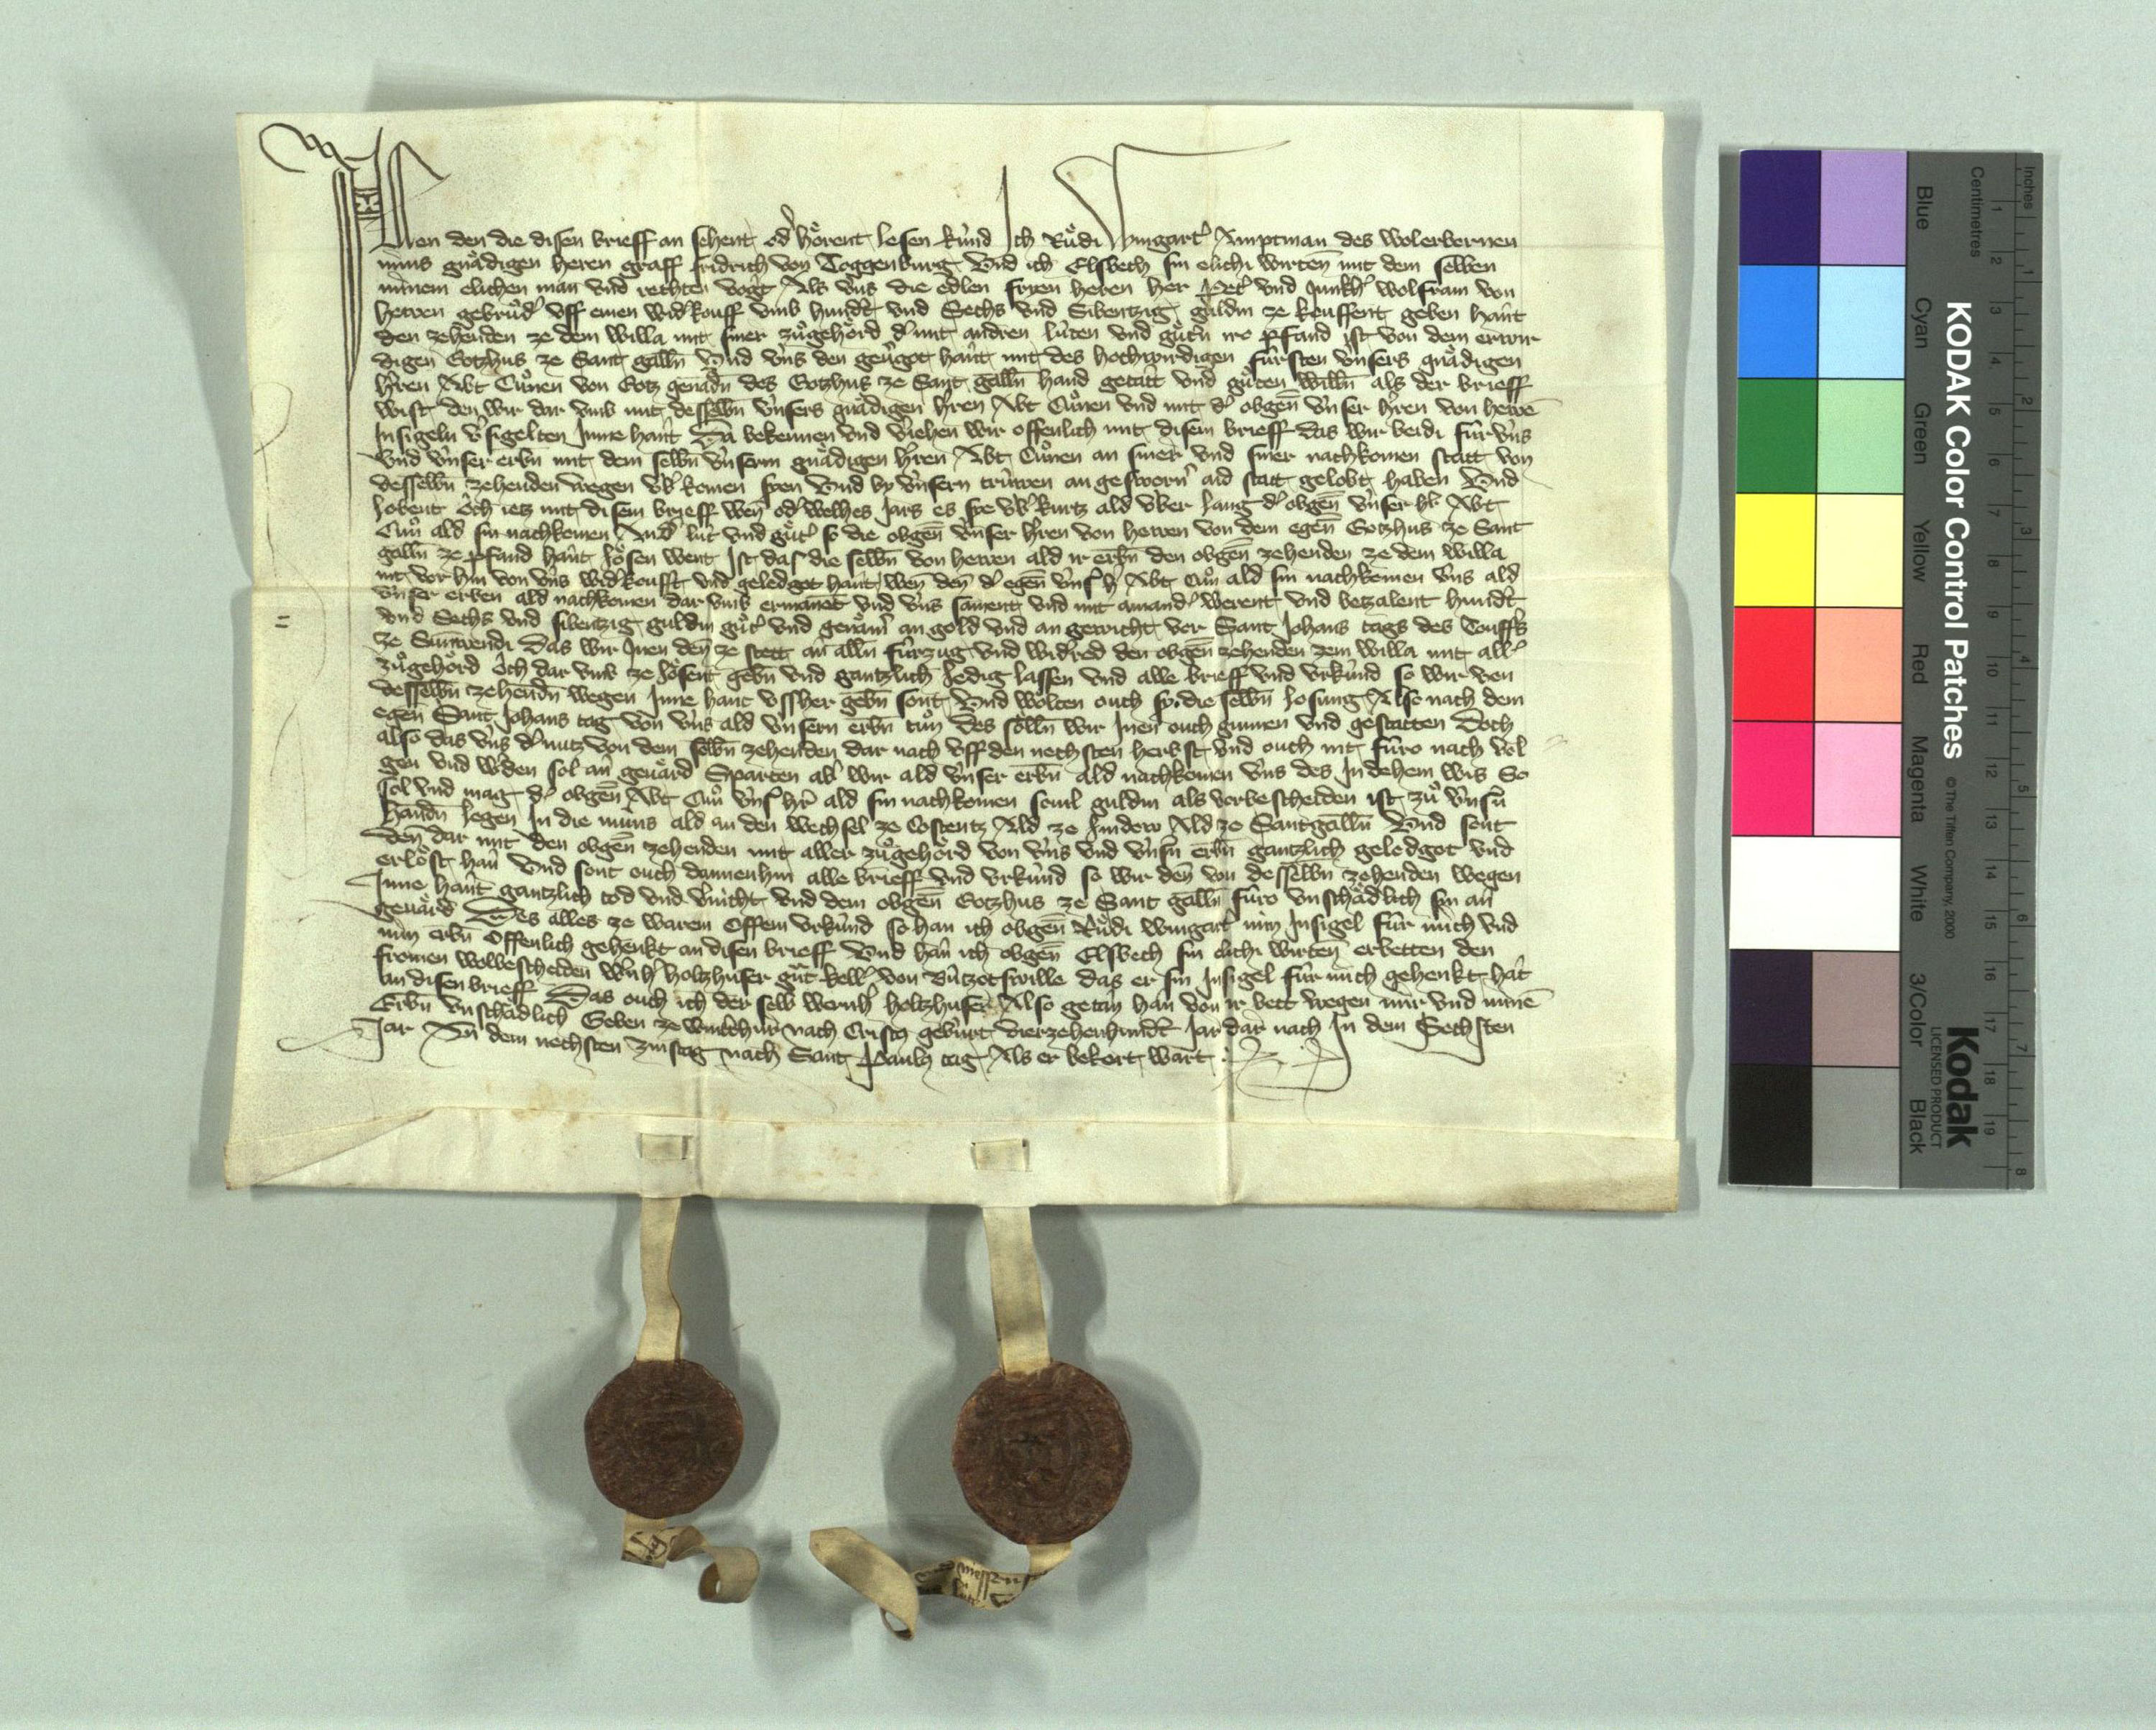 Allen den die disen brieff an sehent od' hoͤrent lesen kúnd Ich Ruͤdi Wingart' Amptman des wolerbornen
mins gnaͤdigen heren graff fridrich von Toggenburg Vnd ich Elsbeth sin elichi wirten̄ mit dem selben
minem elichen man vnd rechten vogt Als vns die edlen fryen heren her Pet' vnd Junkh' wolfram von
hewen gebruͤd' vff einen wid'kouff vmb hund't vnd Sechs vnd Sibentzig guldin ze kouffent geben hant
den zehenden ze dem willa mit siner zuͦgehoͤrd d' mit andren lúten vnd guͤt'n ire pfand ist von dem erwir
digen Gotzhus ze Sant galln̄ Vnd vns den geúgot hant mit des hochwirdigen fúrsten vnsers gnaͤdigen
h'ren Abt Cuͦnen von Gotz genadn̄ des Gotzhus ze Sant galln̄ hand getaͤtt vnd guͦten willn̄ als der brieff
wist den wir dar vmb mit desselbn̄ vnsers gnaͤdigen h'ren Abt Cuͦnen vnd mit d' obgen̄ vnser h'ren von hewē
Insigeln v'sigelten Inne hant Da bekennen vnd v'iehen wir offenlich mit disem brieff das wir beidi fúr vns
vnd vnser erbn̄ mit dem selbn̄ vnserm gnaͤdigen h'ren Abt Cuͦnen an siner vnd siner nachkomen statt von
desselbn̄ zehenden wegen úb'komen syen Vnd by vnsern trúwen an geswornn̄ aid statt gelobt haben Vnd
lobent och ietz mit disem brieff wen̄ od' welhes Jars es sye úb' kurtz ald úber lang d' obgen̄ vnser h'r Abt
Cuͦn ald sin nachkomen And' lút vnd guͤt' so die obgen̄ vnser h'ren von hewen von dem egen̄ Gotzhus ze Sant
galln̄ ze pfand hant loͤsen went Ist das die selbn̄ von hewen ald ir erbn̄ den obgen̄ zehenden ze dem willa
nit vor hin von vns wid'koufft vnd geledgot hant wen̄ den̄ d' egen̄ vns' h' Abt Cuͦn ald sin nachkomen vns ald
vnser erben ald nachkomen dar vmb ermanet vnd vns sament vnd mit ainand' werent vnd betzalent hund't
vnd Sechs vnd sibentzig guldin guͦt' vnd genaͤm' an gold vnd an gewicht vor Sant Johans tags des Touff's
ze Sunwendi Das wir Inen den̄ ze stett an alln̄ fúrzug vnd wid'red den obgen̄ zehenden zem willa mit all'
zuͦgehoͤrd och dar vmb ze loͤsent gebn̄ vnd gantzlich ledig lassen vnd alle brieff vnd vrkúnd so wir von
desselbn̄ zehendn̄ wegen Inne hant vsher gebn̄ sont Vnd woͤlten ouch sy die selbn̄ losung Also nach dem
egen̄ Sant Johans tag von vns ald vnsern erbn̄ tuͦn des soͤlln̄ wir Inen ouch gunnen vnd gestatten Doch
also das vns d' nutz von dem selbn̄ zehenden dar nach vff den nechsten herbst vnd ouch nit fúro nach vol
gen vnd w'den sol an geuaͤrd Sparten ab' wir ald vnser erbn̄ ald nachkomen vns des In dehein wis So
sol vnd mag d' obgen̄ Abt Cuͦn vns' h'r ald sin nachkomen souil guldin als vorbescheiden ist zuͦ vnsn̄
handn̄ legen In die múns ald an den wechsel ze Costentz Ald ze lindow Ald ze Santgalln̄ Vnd sont
den̄ dar mit den obgen̄ zehenden mit aller zuͦgehoͤrd von vns vnd vnsn̄ erbn̄ gantzlich geledgot vnd
erloͤst han Vnd sont ouch dannenhin alle brieff vnd vrkúnd so wir den̄ von desselbn̄ zehenden wegen
Inne hant gantzlich tod vnd v'nicht vnd dem obgen̄ Gotzhus ze Sant galln̄ fúro vnschaͤdlich sin an
geuaͤrd Des alles ze warem offem vrkúnd so han ich obgen̄ Ruͤdi wingart' min Insigel fúr mich vnd
min erbn̄ offenlich gehenkt an disen brieff Vnd han ich obgen̄ Elsbeth sin elichi wirten̄ erbetten den
fromen wolbescheiden w'nh' holtzhuser guͦt kell' von Bútzetswille das er sin Insigel fúr mich gehenkt hat
an disen brieff Das ouch ich der selb wernh' holtzhuser Also getan han von ir bett wegen mir vnd minē
Erbn̄ vnschaͤdlich Geben ze wintthur nach Cristz gebúrt vierzehenhund't Jar dar nach In dem Sechsten
Jar An dem nechsten zinstag nach Sant Pauls tag Als er bekert wart
KODAK Color Control Patches
© The Tiffen Company, 2000
Kodak
LICENSED PRODUCT
Blue Cyan Green Yellow Red Magenta White 3/Color Black
Inches 1 2 3 4 5 6 7 8
Centimetres 1 2 3 4 5 6 7 8 9 10 11 12 13 14 15 16 17 18 19